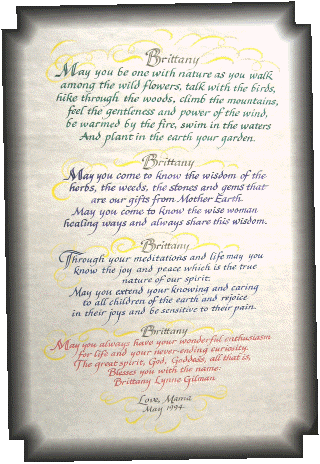 Brittany
May you be one with nature as you walk
among the wild flowers, talk with the birds,
hike through the woods, climb the mountains,
feel the gentleness and power of the wind,
be warmed by the fire, swim in the waters
And plant in the earth your garden.
Brittany
May you come to know the wisdom of the
herbs, the weeds, the stones and gems that
are our gifts from Mother Earth.
May you come to know the wise woman
healing ways and always share this wisdom.
Brittany
Through your meditations and life may you
know the joy and peace which is the true
nature of our spirit.
May you extend your knowing and caring
to all children of the earth and rejoice
in their joys and be sensitive to their pain.
Brittany
May you always have your wonderful enthusiasm
for life and your never-ending curiosity.
The great spirit, God, Goddess, all that is,
Blesses you with the name:
Brittany Lynne Gilman
Love, Mama
May 1994